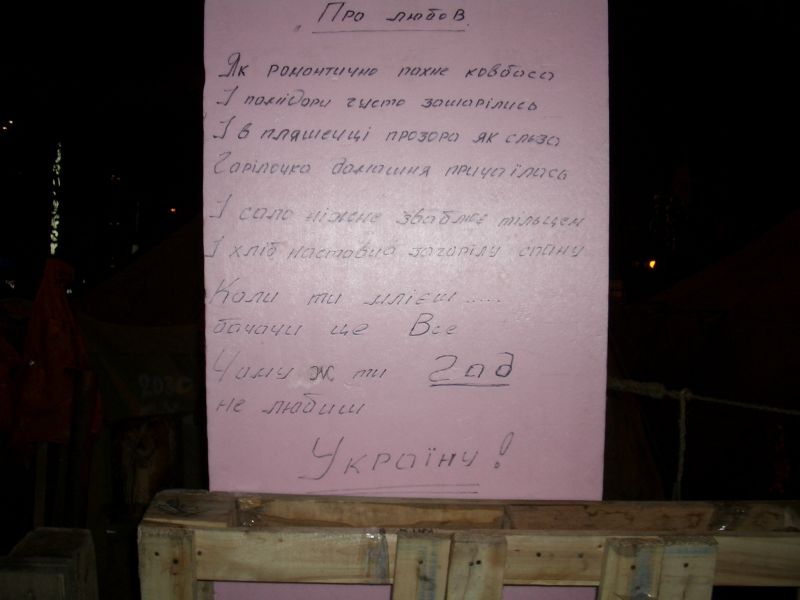 Про любов.
Як романтично пахне ковбаса
І помідори густо зашарілись
І в пляшечці прозора як сльоза
Горілочка домашня причаїлась
І сало ніжне зваблює тільцем
І хліб наставив загорілу спину
Коли ти млієш.....
бачачи це Все
Чому ж ти Гад
не любиш
Україну!